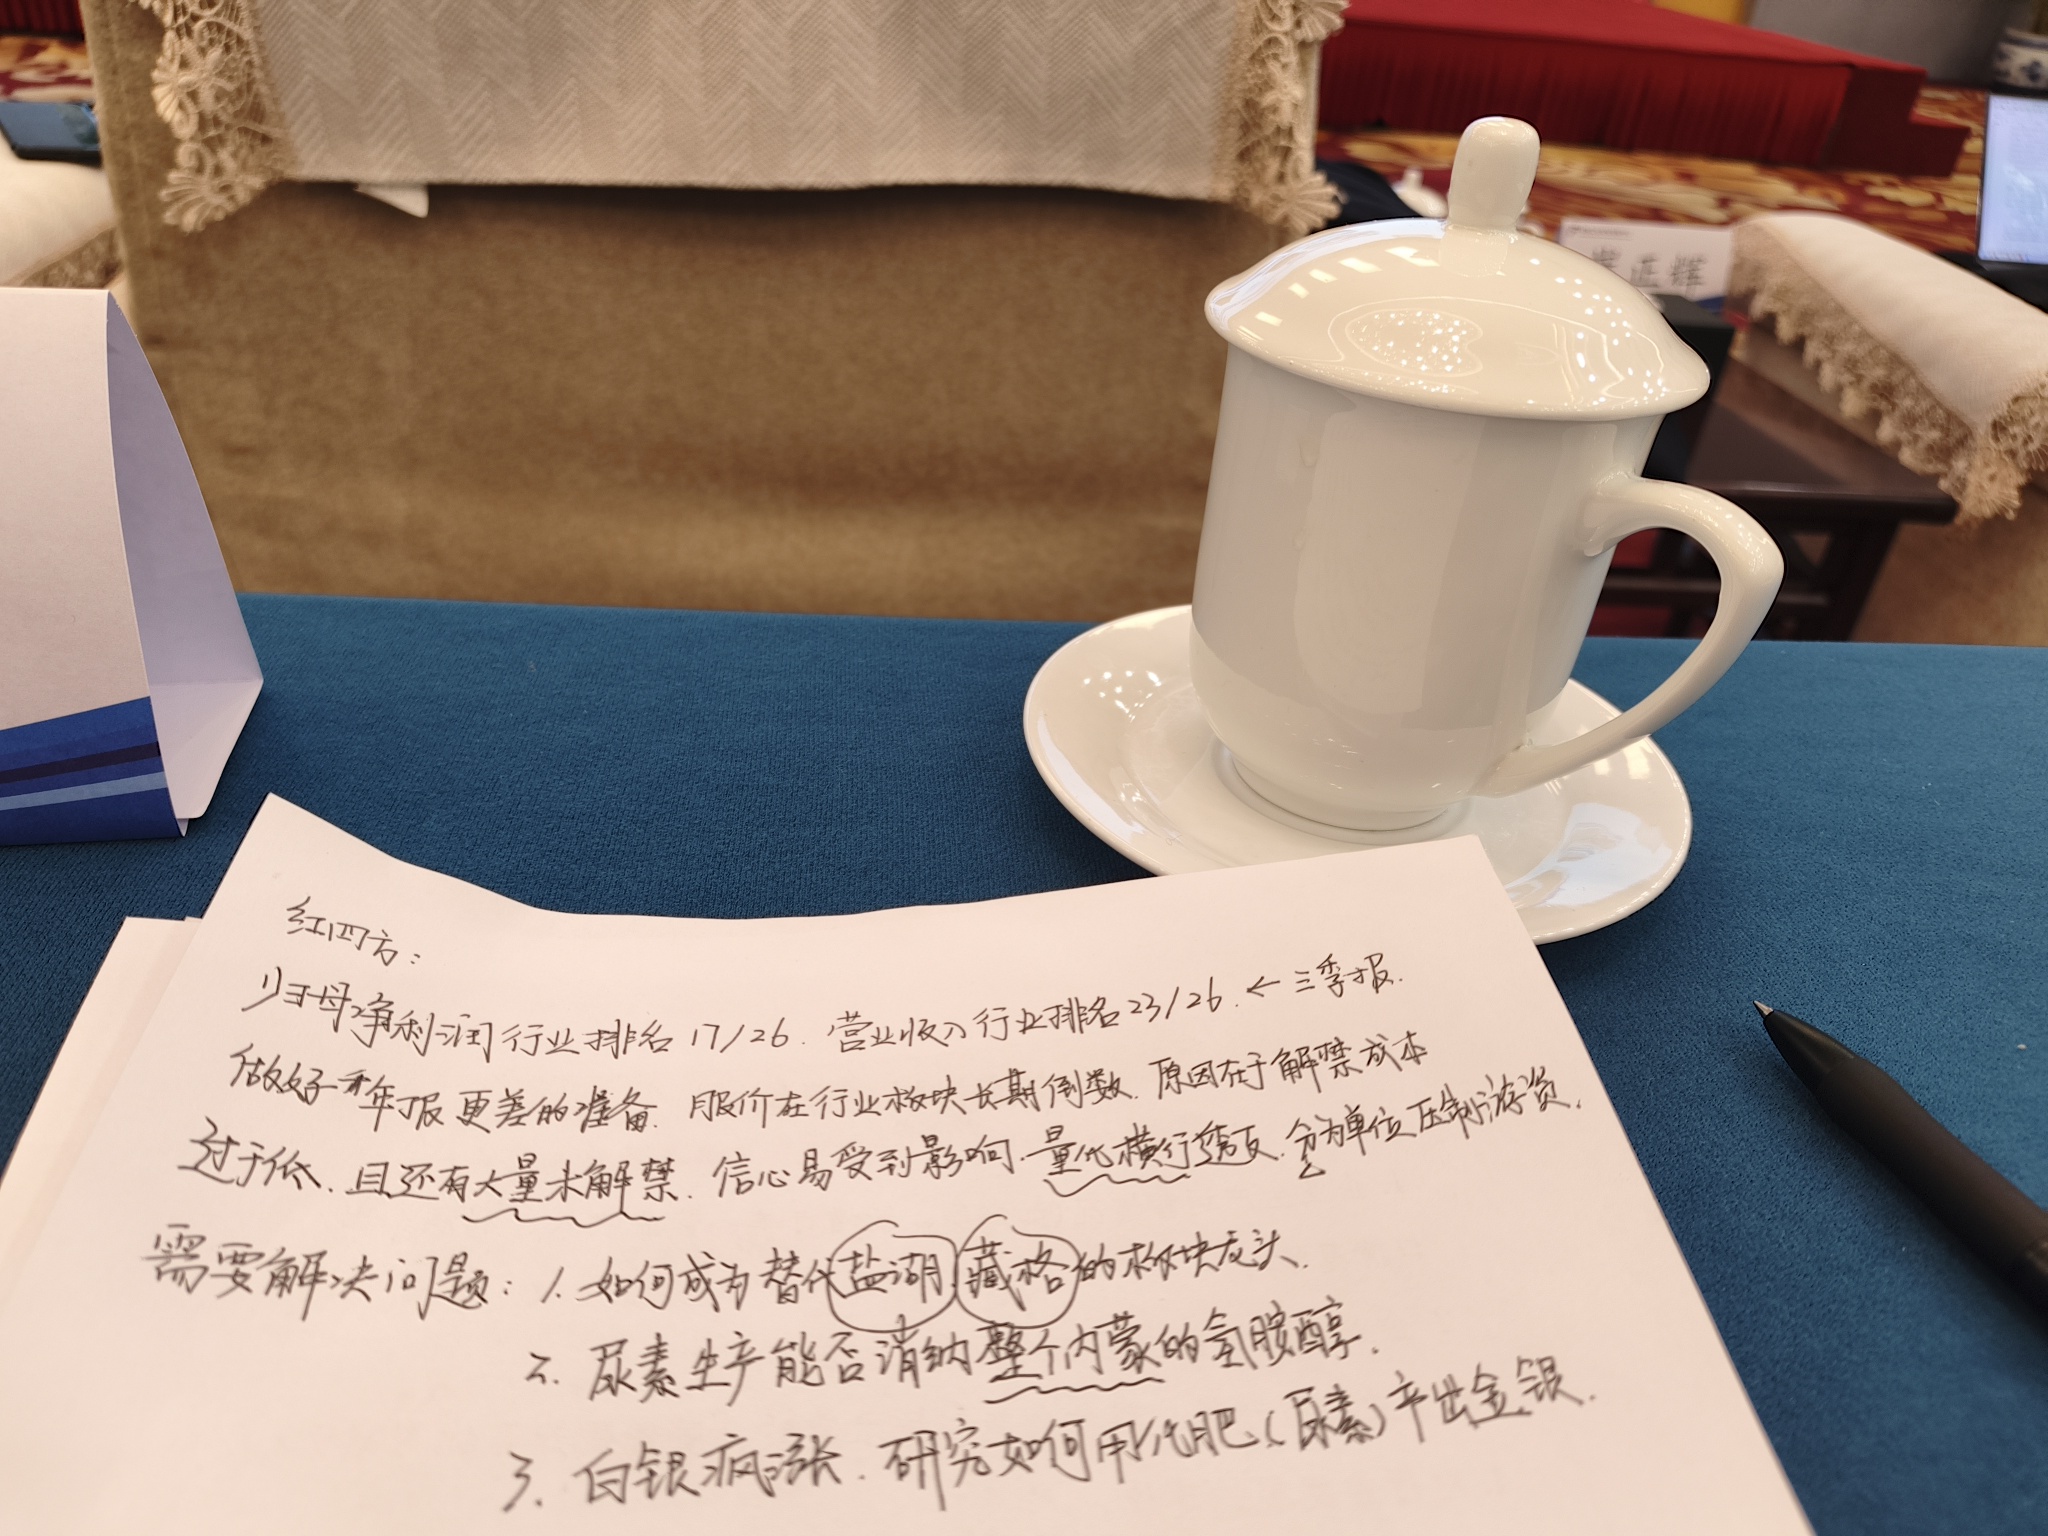 正辉
红四方：
归母净利润行业排名17/26. 营业收入行业排名23/26. ← 三季报.
做好年报更差的准备. 股价在行业板块长期倒数. 原因在于解禁成本
过于低、且还有大量未解禁. 信心易受到影响. 量化横行 分为单位压制游资.
需要解决问题：1. 如何成为替代盐湖、藏格的板块龙头.
2. 尿素生产能否消纳整个内蒙的氢胺醇.
3. 白银疯涨. 研究如何用化肥(尿素)产出金、银.